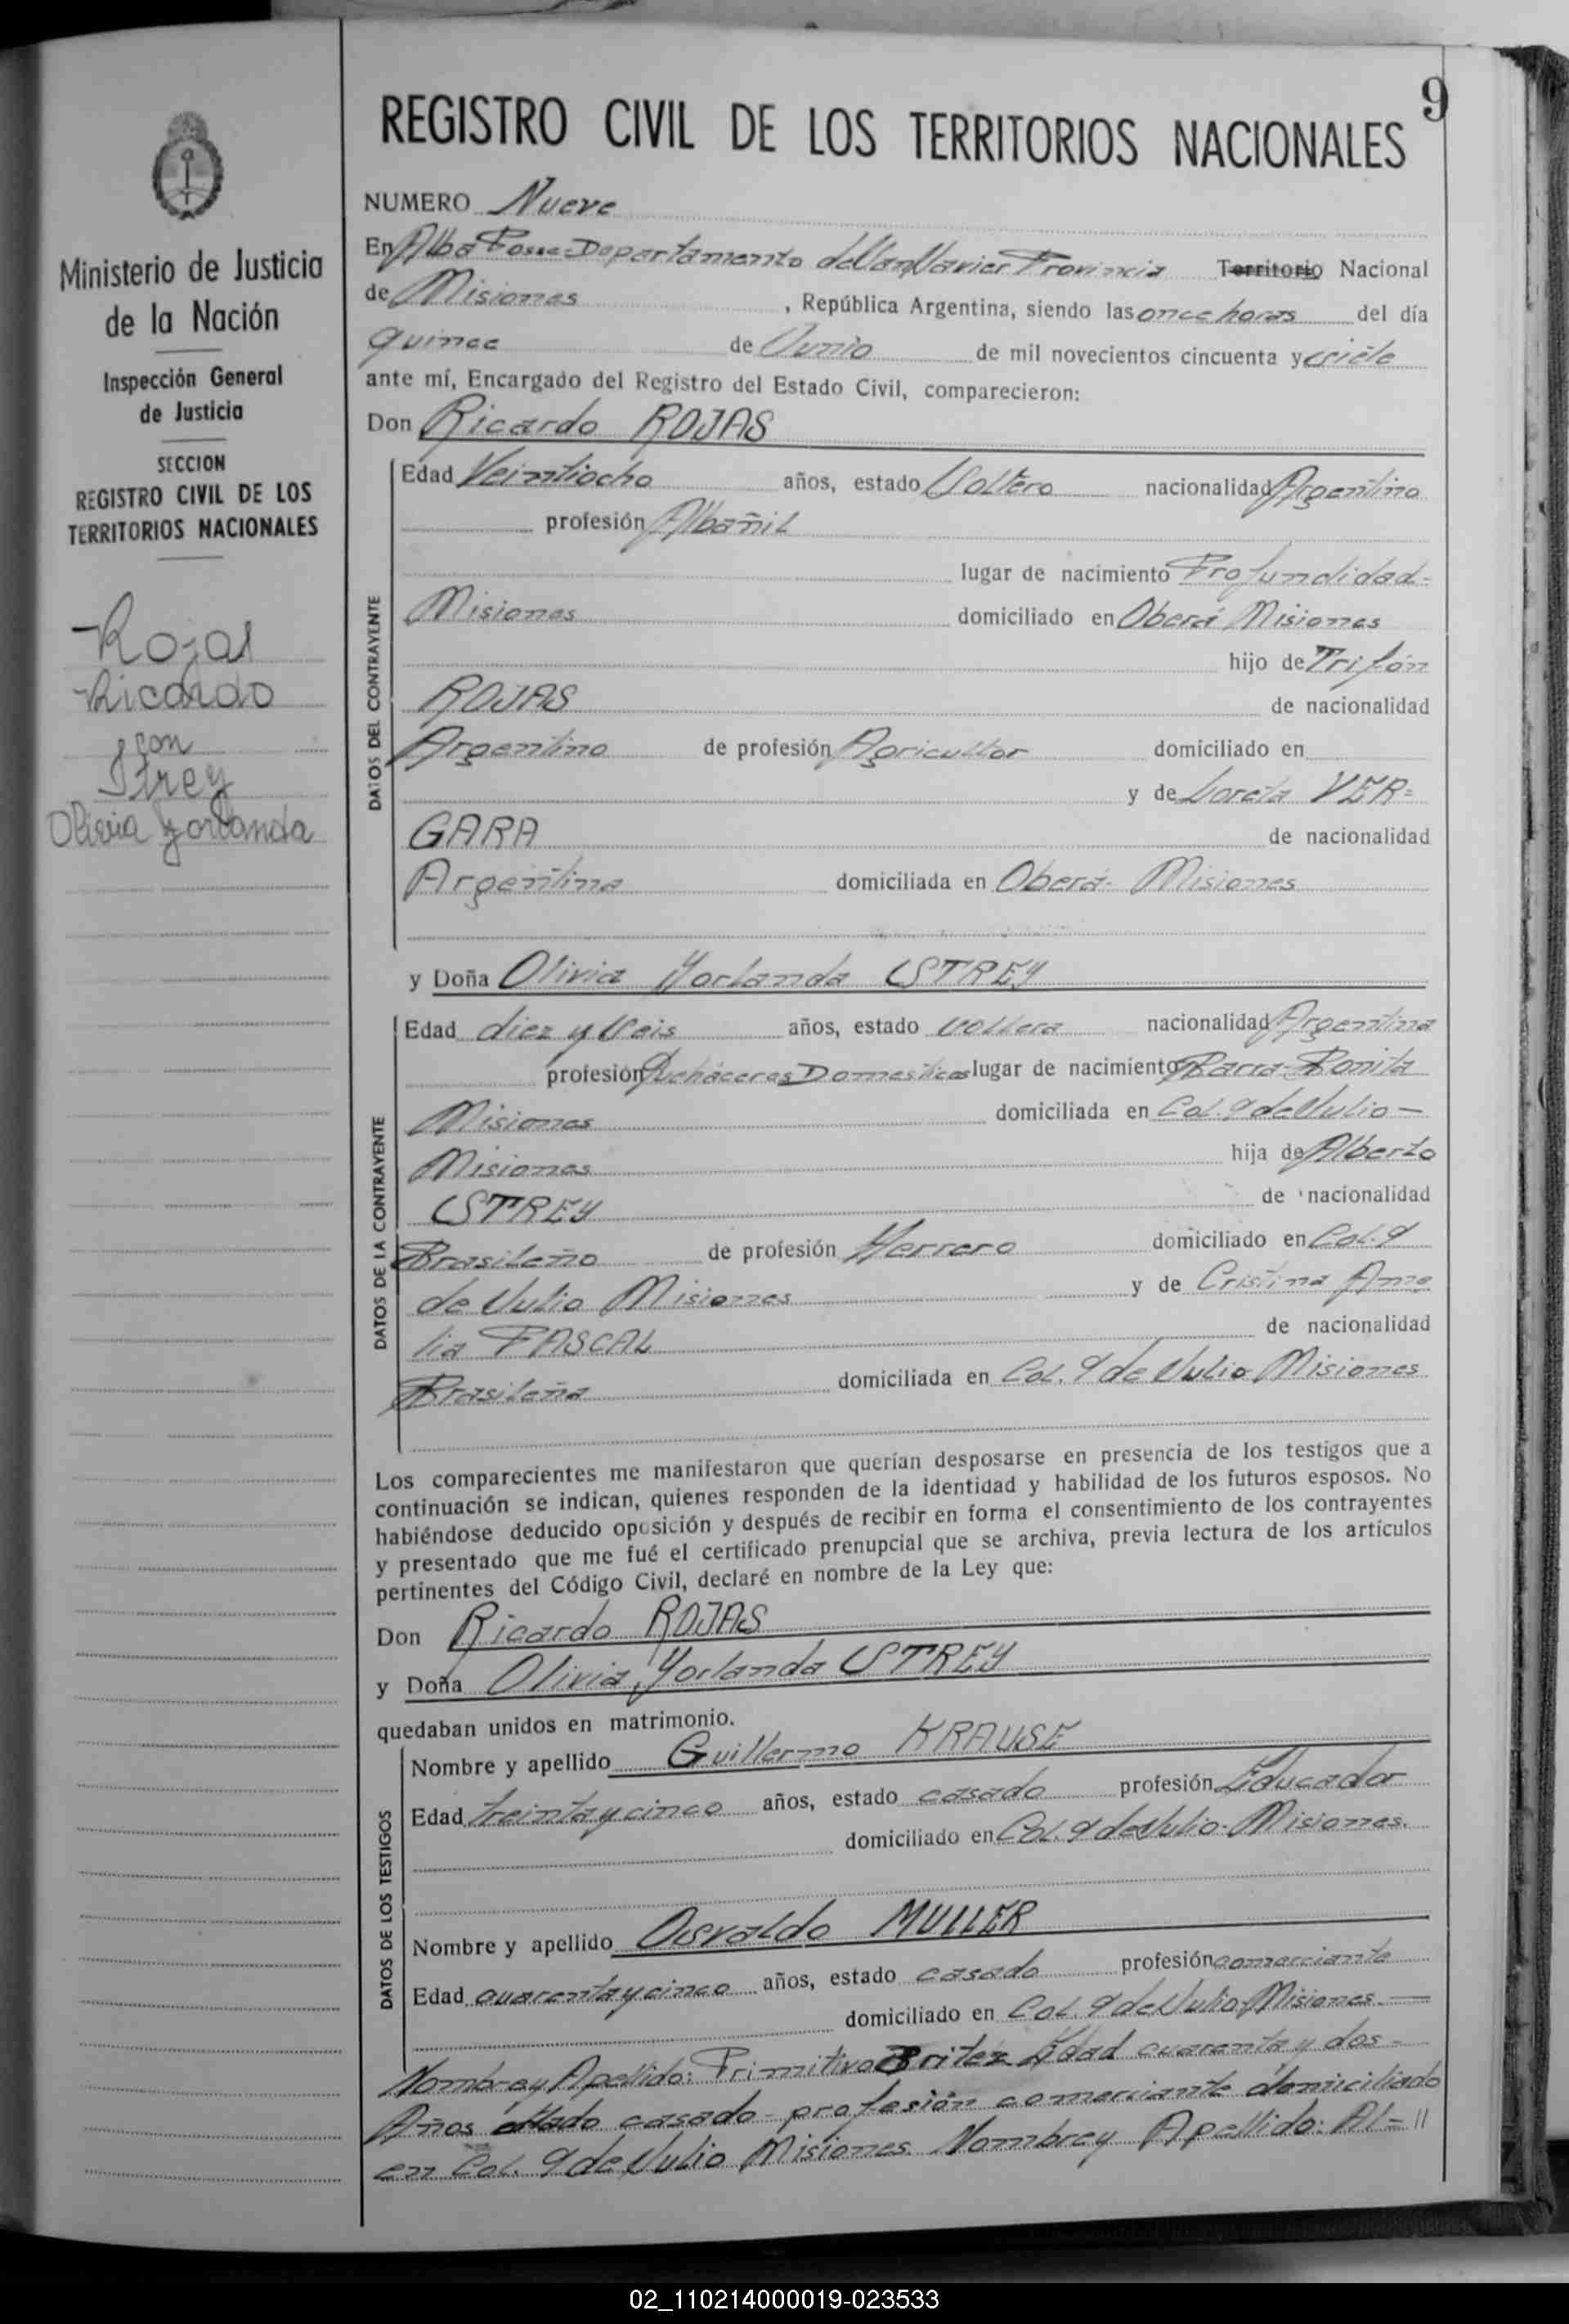 9
REGISTRO CIVIL DE LOS TERRITORIOS NACIONALES
NUMERO Nueve
En Alba Posse-Departamento de San Javier Provincia Territorio Nacional
de Misiones, República Argentina, siendo las once horas del día
quince de Junio de mil novecientos cincuenta y siete
ante mí, Encargado del Registro del Estado Civil, comparecieron:
Don Ricardo ROJAS
DATOS DEL CONTRAYENTE
Edad Veintiocho años, estado Soltero nacionalidad Argentino
profesión Albañil
lugar de nacimiento Profundidad-
Misiones domiciliado en Oberá Misiones
hijo de Trifón
ROJAS de nacionalidad
Argentino de profesión Agricultor domiciliado en
y de Loreta VER=
GARA de nacionalidad
Argentina domiciliada en Oberá- Misiones
y Doña Olivia Yorlanda STREY
DATOS DE LA CONTRAYENTE
Edad diez y Seis años, estado soltera nacionalidad Argentina
profesión Quehaceres Domesticos lugar de nacimiento Barra-Bonita
Misiones domiciliada en Col. 9 de Julio-
Misiones hija de Alberto
STREY de nacionalidad
Brasileño de profesión Herrero domiciliado en Col. 9
de Julio Misiones y de Cristina Ame
lia PASCAL de nacionalidad
Brasileña domiciliada en Col. 9 de Julio Misiones
Los comparecientes me manifestaron que querían desposarse en presencia de los testigos que a
continuación se indican, quienes responden de la identidad y habilidad de los futuros esposos. No
habiéndose deducido oposición y después de recibir en forma el consentimiento de los contrayentes
y presentado que me fué el certificado prenupcial que se archiva, previa lectura de los artículos
pertinentes del Código Civil, declaré en nombre de la Ley que:
Don Ricardo ROJAS
y Doña Olivia Yorlanda STREY
quedaban unidos en matrimonio.
DATOS DE LOS TESTIGOS
Nombre y apellido Guillermo KRAUSE
Edad treinta y cinco años, estado casado profesión Educador
domiciliado en Col. 9 de Julio-Misiones.
Nombre y apellido Osvaldo MULLER
Edad cuarenta y cinco años, estado casado profesión comerciante
domiciliado en Col. 9 de Julio-Misiones.—
Nombre y Apellido: Primitivo Britez Edad cuarenta y dos-
Años estado casado- profesión comerciante domiciliado
en Col. 9 de Julio Misiones. Nombre y Apellido: AL=//
Ministerio de Justicia
de la Nación
Inspección General
de Justicia
SECCION
REGISTRO CIVIL DE LOS
TERRITORIOS NACIONALES
Rojas
Ricardo
con
Strey
Olivia Yorlanda
02_110214000019-023533